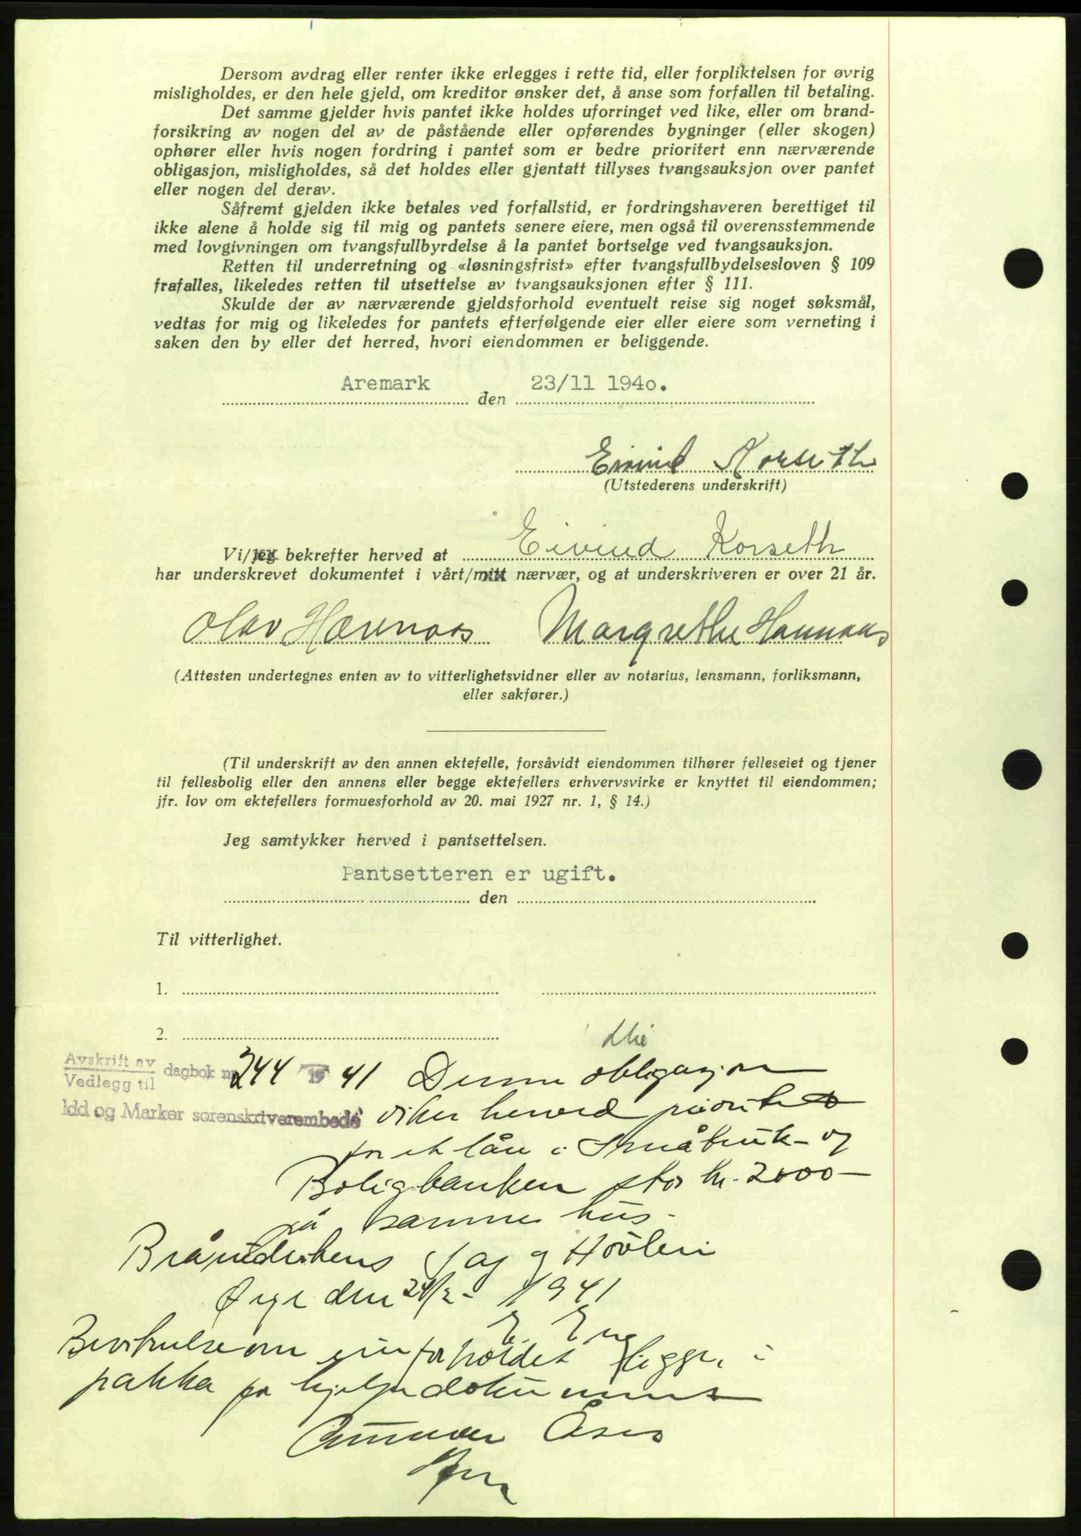 Dersom avdrag eller renter ikke erlegges i rette tid, eller forpliktelsen for øvrig
misligholdes, er den hele gjeld, om kreditor ønsker det, å anse som forfallen til betaling.
Det samme gjelder hvis pantet ikke holdes uforringet ved like, eller om brand-
forsikring av nogen del av de påstående eller opførendes bygninger (eller skogen)
ophører eller hvis nogen fordring i pantet som er bedre prioritert enn nærværende
obligasjon, misligholdes, så det holdes eller gjentatt tillyses tvangsauksjon over pantet
eller nogen del derav.
Såfremt gjelden ikke betales ved forfallstid, er fordringshaveren berettiget til
ikke alene å holde sig til mig og pantets senere eiere, men også til overensstemmende
med lovgivningen om tvangsfullbyrdelse å la pantet bortselge ved tvangsauksjon.
Retten til underretning og «løsningsfrist» efter tvangsfullbydelsesloven § 109
frafalles, likeledes retten til utsettelse av tvangsauksjonen efter § 111.
Skulde der av nærværende gjeldsforhold eventuelt reise sig noget søksmål,
vedtas for mig og likeledes for pantets efterfølgende eier eller eiere som verneting i
saken den by eller det herred, hvori eiendommen er beliggende.
Aremark den 23/11 1940.
Eivind Korseth
(Utstederens underskrift)
Vi/jeg bekrefter herved at Eivind Korseth
har underskrevet dokumentet i vårt/mitt nærvær, og at underskriveren er over 21 år.
Olav Hannaas Margrethe Hannaas
(Attesten undertegnes enten av to vitterlighetsvidner eller av notarius, lensmann, forliksmann,
eller sakfører.)
(Til underskrift av den annen ektefelle, forsåvidt eiendommen tilhører felleseiet og tjener
til fellesbolig eller den annens eller begge ektefellers erhvervsvirke er knyttet til eiendommen;
jfr. lov om ektefellers formuesforhold av 20. mai 1927 nr. 1, § 14.)
Jeg samtykker herved i pantsettelsen.
Pantsetteren er ugift.
den
Til vitterlighet.
1.
2.
Avskrift av
Vedlegg til dagbok nr. 244 19 41 Denne obligasjon
Idd og Marker sorenskriverembede viker herved prioritet
for et lån i Småbruk- og
Boligbanken stor kr. 2000-
på samme hus.
Sag og Høvleri
Ørje den 24/2- 1941
E Eng
ligger i
pakka for hjelpedokumens
Gunnar Åses